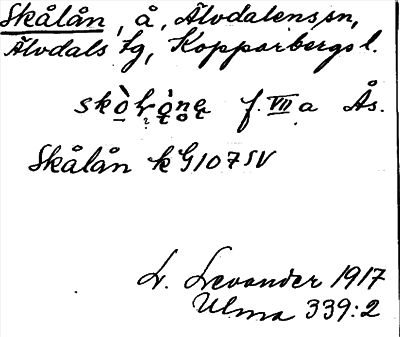 Skålån, å, Älvdalens sn,
Älvdals tg, Kopparbergs l.
f. VII a Ås.
Skålån k G107SV
L. Levander 1917
Ulma 339:2